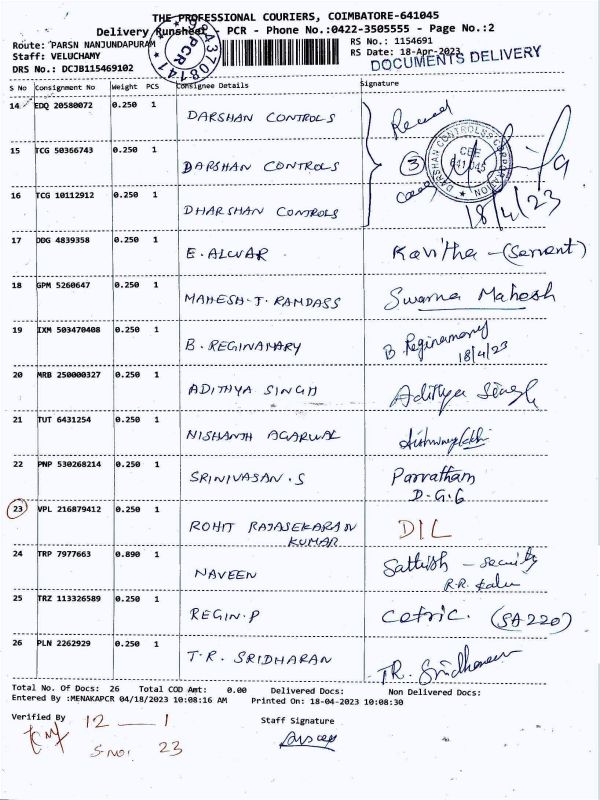 THE PROFESSIONAL COURIERS, COIMBATORE-641045
Delivery Runsheet - PCR - Phone No.:0422-3505555 - Page No.:2
Route: PARSN NANJUNDAPURAM RS No.: 1154691
Staff: VELUCHAMY RS Date: 18-Apr-2023
DOCUMENTS DELIVERY
DRS No.: DCJB115469102
PCR
S No Consignment No Weight PCS Consignee Details Signature
14 EDQ 20580072 0.250 1 DARSHAN CONTROLS
15 TCG 50366743 0.250 1 DARSHAN CONTROLS 3
DARSHAN CONTROLS CORPORATION
CBE
641 045
16 TCG 10112912 0.250 1 DHARSHAN CONTROLS 18/4/23
17 DDG 4839358 0.250 1 E. ALWAR Kavitha - (Servent)
18 GPM 5260647 0.250 1 MAHESH.T. RAMDASS Swarna Mahesh
19 IXM 503470408 0.250 1 B. REGINAMARY B. Reginamary
18/4/23
20 MRB 250000327 0.250 1 ADITHYA SINGH Adithya Singh
21 TUT 6431254 0.250 1 NISHANTH AGARWAL
22 PNP 530268214 0.250 1 SRINIVASAN.S Parvatham
D.G.G
23 VPL 216879412 0.250 1 ROHIT RAJASEKARAN DIL
KUMAR
24 TRP 7977663 0.890 1 NAVEEN Sathish - Security
R.R.
25 TRZ 113326589 0.250 1 REGIN.P Cetric. (SA220)
26 PLN 2262929 0.250 1 T.R. SRIDHARAN TR. Sridharan
Total No. Of Docs: 26 Total COD Amt: 0.00 Delivered Docs: Non Delivered Docs:
Entered By :MENAKAPCR 04/18/2023 10:08:16 AM Printed On: 18-04-2023 10:08:30
Verified By 12 — 1 Staff Signature
S.no: 23